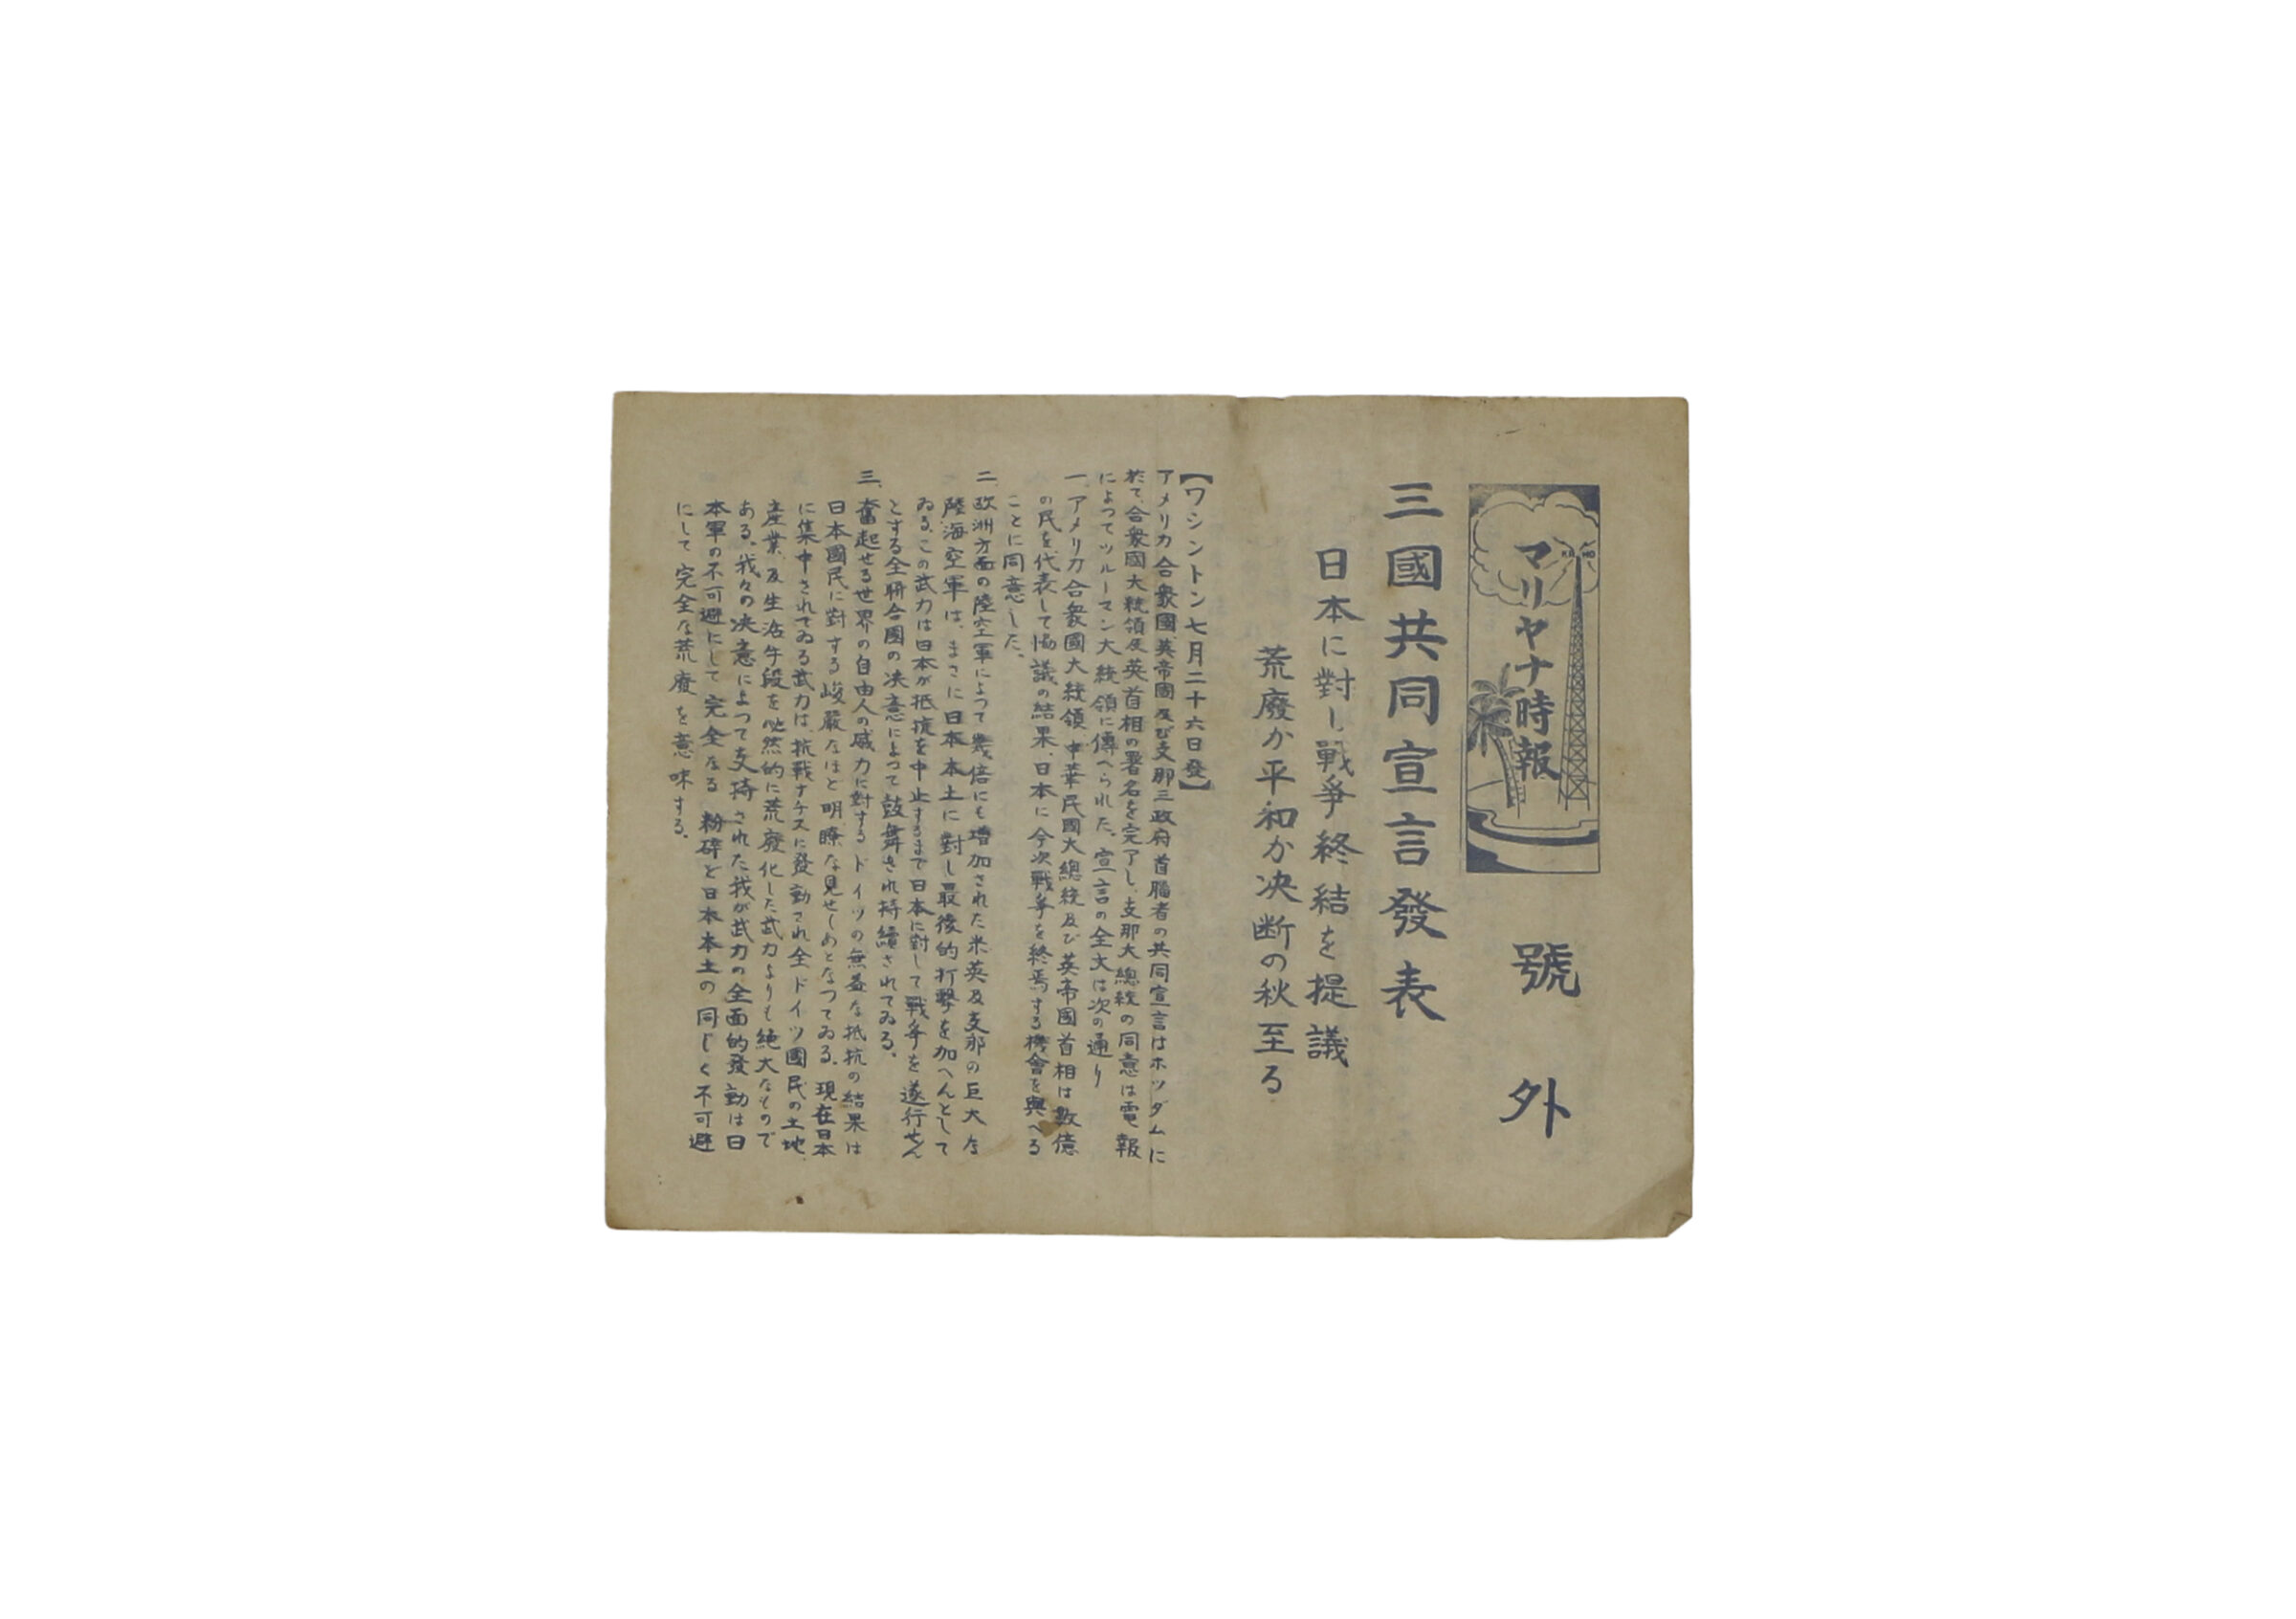 マリヤナ時報
KR HO
號外
三國共同宣言發表
日本に對し戰爭終結を提議
荒廢か平和か决断の秋至る
【ワシントン七月二十六日發】
アメリカ合衆國英帝國及び支那三政府首腦者の共同宣言はポツダムに
於て、合衆國大統領及英首相の署名を完了し、支那大總統の同意は電報
によつてツルーマン大統領に傳へられた。宣言の全文は次の通り
一、アメリカ合衆國大統領、中華民國大總統及び英帝國首相は數億
の民を代表して協議の結果、日本に今次戰爭を終焉する機會を與へる
ことに同意した。
二、欧洲方面の陸空軍によつて幾倍にも增加された米英及支那の巨大な
陸海空軍は、まさに日本本土に對し最後的打擊を加へんとして
ゐる、この武力は日本が抵抗を中止するまで日本に對して戰爭を遂行せん
とする全聯合國の决意によつて鼓舞され持續されてゐる。
三、奮起せる世界の自由人の威力に對するドイツの無益な抵抗の結果は
日本國民に對する峻嚴なほど明瞭な見せしめとなつてゐる。現在日本
に集中されてゐる武力は、抗戰ナチスに發動され全ドイツ國民の土地、
産業、及生活手段を必然的に荒廢化した武力よりも絶大なもので
ある。我々の决意によつて支持された我が武力の全面的發動は日
本軍の不可避にして完全なる粉碎と日本本土の同じく不可避
にして完全な荒廢を意味する。